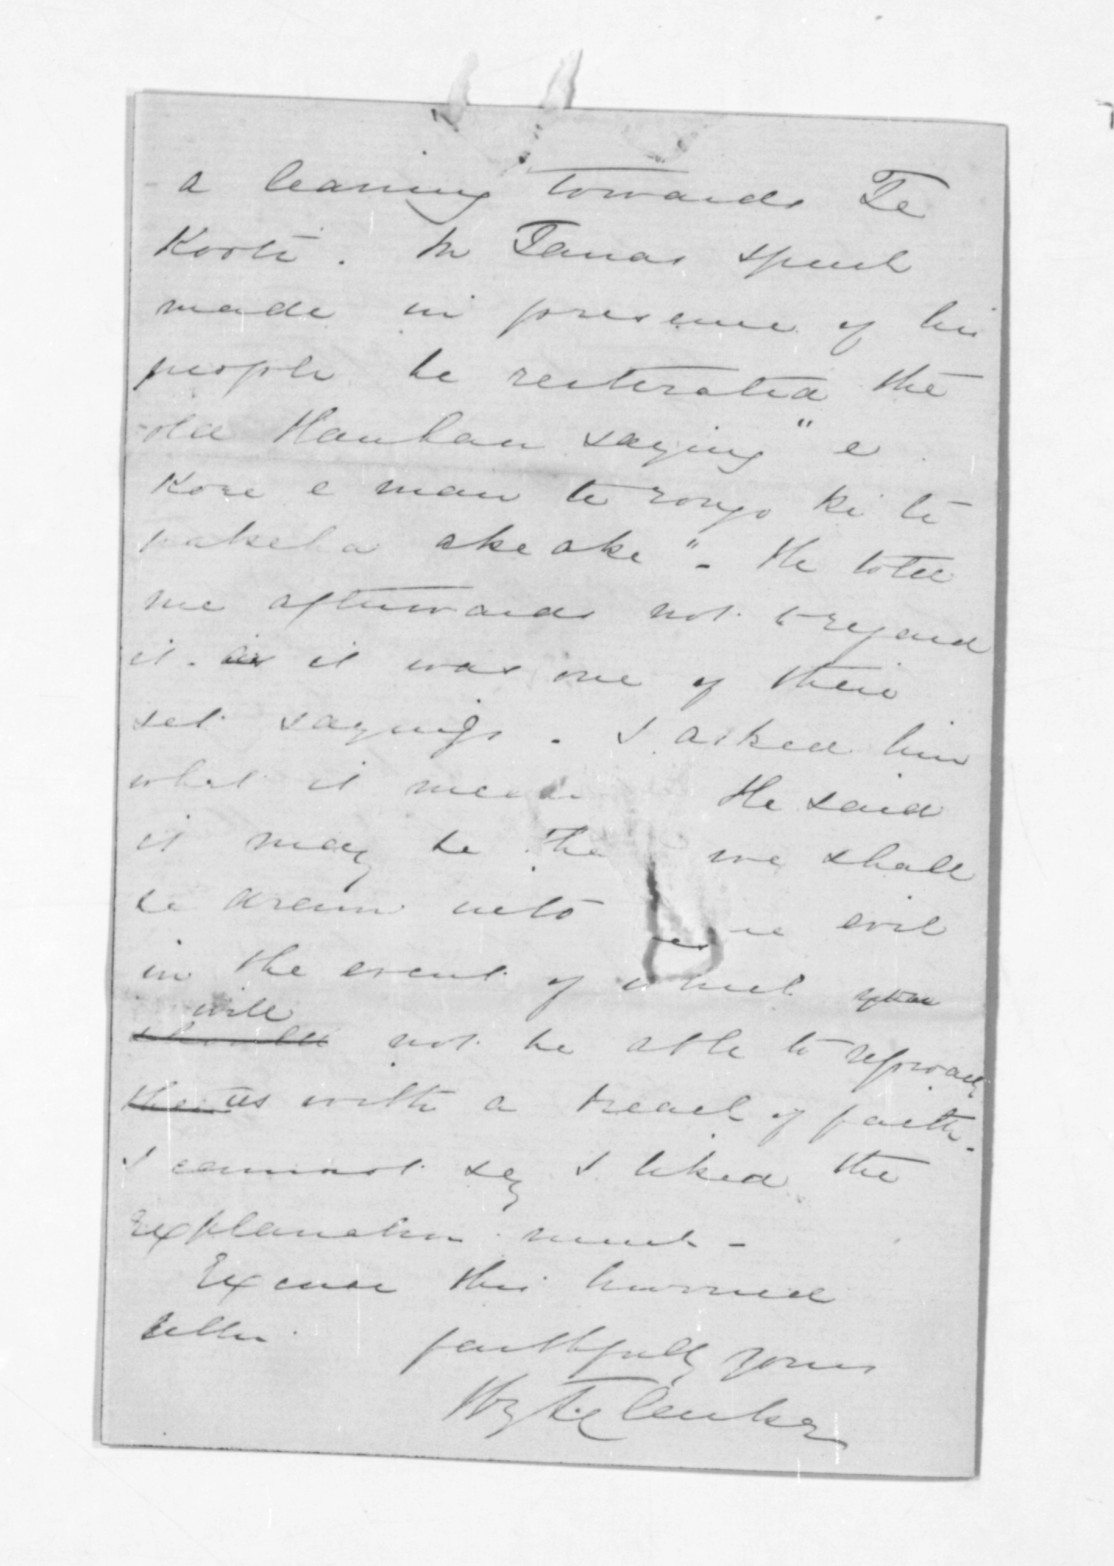 a leaning towards Te
Kooti. In Tanas speech
made in presence of his
people he reiterated the
old Hauhau saying "e
kore e mau te rongo ki te
pakeha ake ake". He told
me afterwards not to regard
it. as it was one of their
set sayings. I asked him
what it meant He said
it may be tha we shall
be drawn into evil
in the event of which you
will
should not be able to reproach
them us with a breach of faith.
I cannot say I liked the
explanation much -
Excuse this hurried
letter. faithfully yours